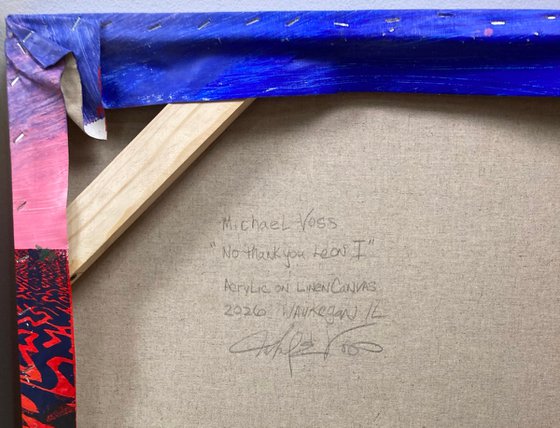 Michael Voss
"No thank you Leon I"
Acrylic on Linen Canvas
2026 Waukegan IL